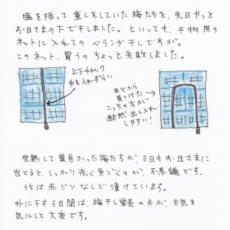 塩を振って重しをしていた梅たちを、先日やっと
お日さまの下で干しました。といっても、干物用の
ネットに入れてのベランダ干しですが。
このネット、買うのちょっと失敗しました。
上下チャック
手を入れずらい
あとから
見つけた
こっちの方が
断然出し入れ
しやすい!
完熟して黄色かった梅たちが、3日もお日さまに
当てると、しっかり赤く色づくのが、不思議です。
うちは赤ジソなしで漬けています。
外に干す3日間は、梅干し官長の夫が、天気を
気にして大変です。